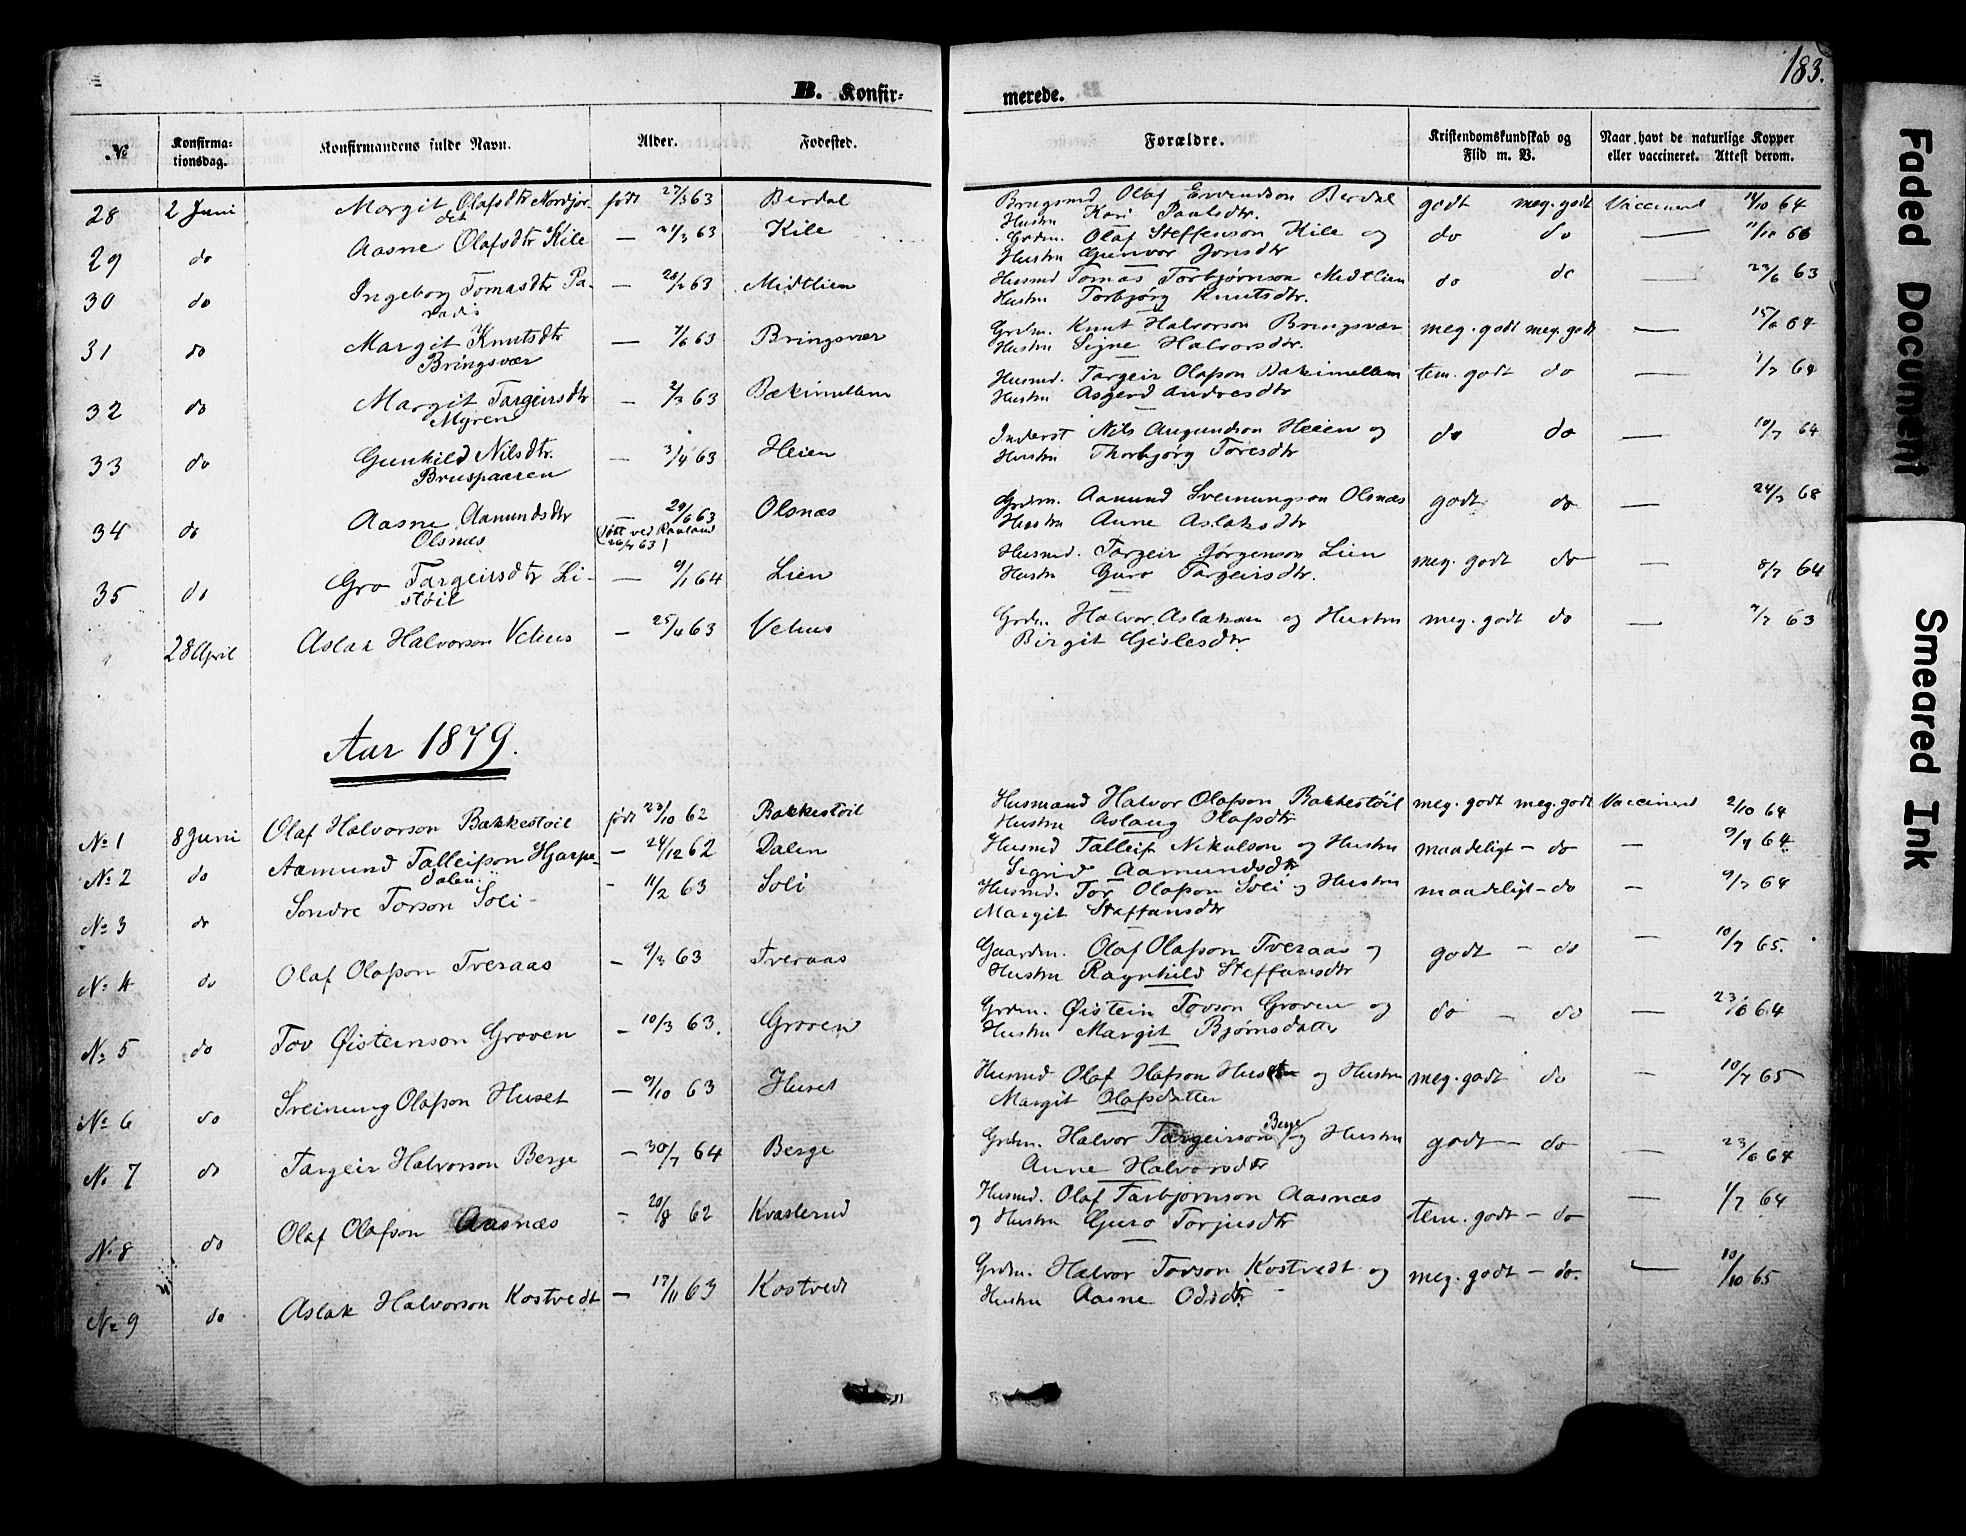 183.
B. Konfir-
merede.
№ Konfirma-tionsdag. Konfirmandens fulde Navn. Alder. Fødested. Forældre. Kristendomskundskab og Flid m. V. Naar havt de naturlige Kopper eller vaccineret. Attest derom.
28 2 Juni Margit Olafsdtr Nordjor- født 27/3 63 Berdal Brugsmd Olaf Eivendson Berdal godt meg. godt Vaccinerd 14/10 64
det Hustru Kari Paulsdtr.
29 do Aasne Olafsdtr Kile — 21/3 63 Kile Grdm. Olaf Steffenson Kile og do do — 11/10 66
Hustru Gunvor Jonsdtr
30 do Ingeborg Tomasdtr Pa- — 28/2 63 Midtlien Husmd Tomas Torbjørnson Midtlien do do — 23/6 63
radis Hustru Torbjørg Knutsdtr.
31 do Margit Knutsdtr — 7/6 63 Bringsvær Grdm. Knut Halvorson Bringsvær meg. godt meg. godt — 15/6 64
Bringsvær Hustru Signe Halvorsdtr.
32 do Margit Targeirsdtr — 2/3 63 Bækimellem Husmd. Targeir Olafson Bækimellem tem. godt do — 1/7 64
Myren Hustru Asgerd Andresdtr
33 do Gunhild Nilsdtr. — 3/4 63 Heien Inderst Nils Augundson Heien og do do — 19/7 64
Bruspaaren Hustru Thorbjørg Toresdtr
34 do Aasne Aamundsdtr — 29/6 63 Olsnæs Grdm. Aamund Sveinungson Olsnæs godt do — 24/7 68
Olsnæs (født ved Rauland Hustru Anne Aslaksdtr
26/7 63)
35 do Gro Targeirsdtr Li- — 9/1 64 Lien Husmd. Targeir Jørgenson Lien meg. godt do — 8/7 64
støil Hustru Guro Targeirsdtr.
28 April Aslak Halvorson Vehus — 25/4 63 Vehus Grdm. Halvor Aslakson og Hustru meg. godt do — 7/7 63
Birgit Gislesdtr.
Aar 1879.
№ 1 8 Juni Olaf Halvorson Bakkestøil født 23/10 62 Bakkestøil Husmand Halvor Olafson Bakkestøil meg. godt meg. godt Vaccinerd 2/10 64
Hustru Aslaug Olafsdtr
№ 2 do Aamund Talleifson Hjarpe- — 24/12 62 Dalen Husmd Talleif Nikulson og Hustru maadeligt — do — 9/7 64
dalen Sigrid Aamundsdtr
№ 3 do Sondre Torson Soli — 11/2 63 Soli Husmd. Tor Olafson Soli og Hustru maadeligt — do — 9/7 64
Margit Staffansdtr
№ 4 do Olaf Olafson Tveraas — 9/3 63 Tveraas Gaardm. Olaf Olafson Tveraas og godt — do — 10/7 65.
Hustru Ragnhild Steffansdtr
№ 5 do Tov Øisteinson Groven — 10/3 63. Groven Grdm. Øistein Tovson Groven og do — do — 23/6 64
Hustru Margit Bjørnsdatter
№ 6 do Sveinung Olafson Huset — 9/10 63 Huset Husmd Olaf Olafson Huset og Hustru meg. godt do — 10/7 65
Margit Olafsdatter
№ 7 do Targeir Halvorson Berge — 30/7 64 Berge Grdm. Halvor Targeirson Berge og Hustru godt — do — 23/6 64
Anne Halvorsdtr
№ 8 do Olaf Olafson Aasnæs — 20/8 62 Kvaslerud Husmd. Olaf Tarbjørnson Aasnæs tem. godt — do — 1/7 64
og Hustru Guro Torjusdtr
№ 9 do Aslak Halvorson Kostvedt — 17/11 63 Kostvedt Grdm. Halvor Tovson Kostvedt og meg. godt — do. — 10/10 65
Hustru Aasne Odsdtr.
Faded Document
Smeared Ink